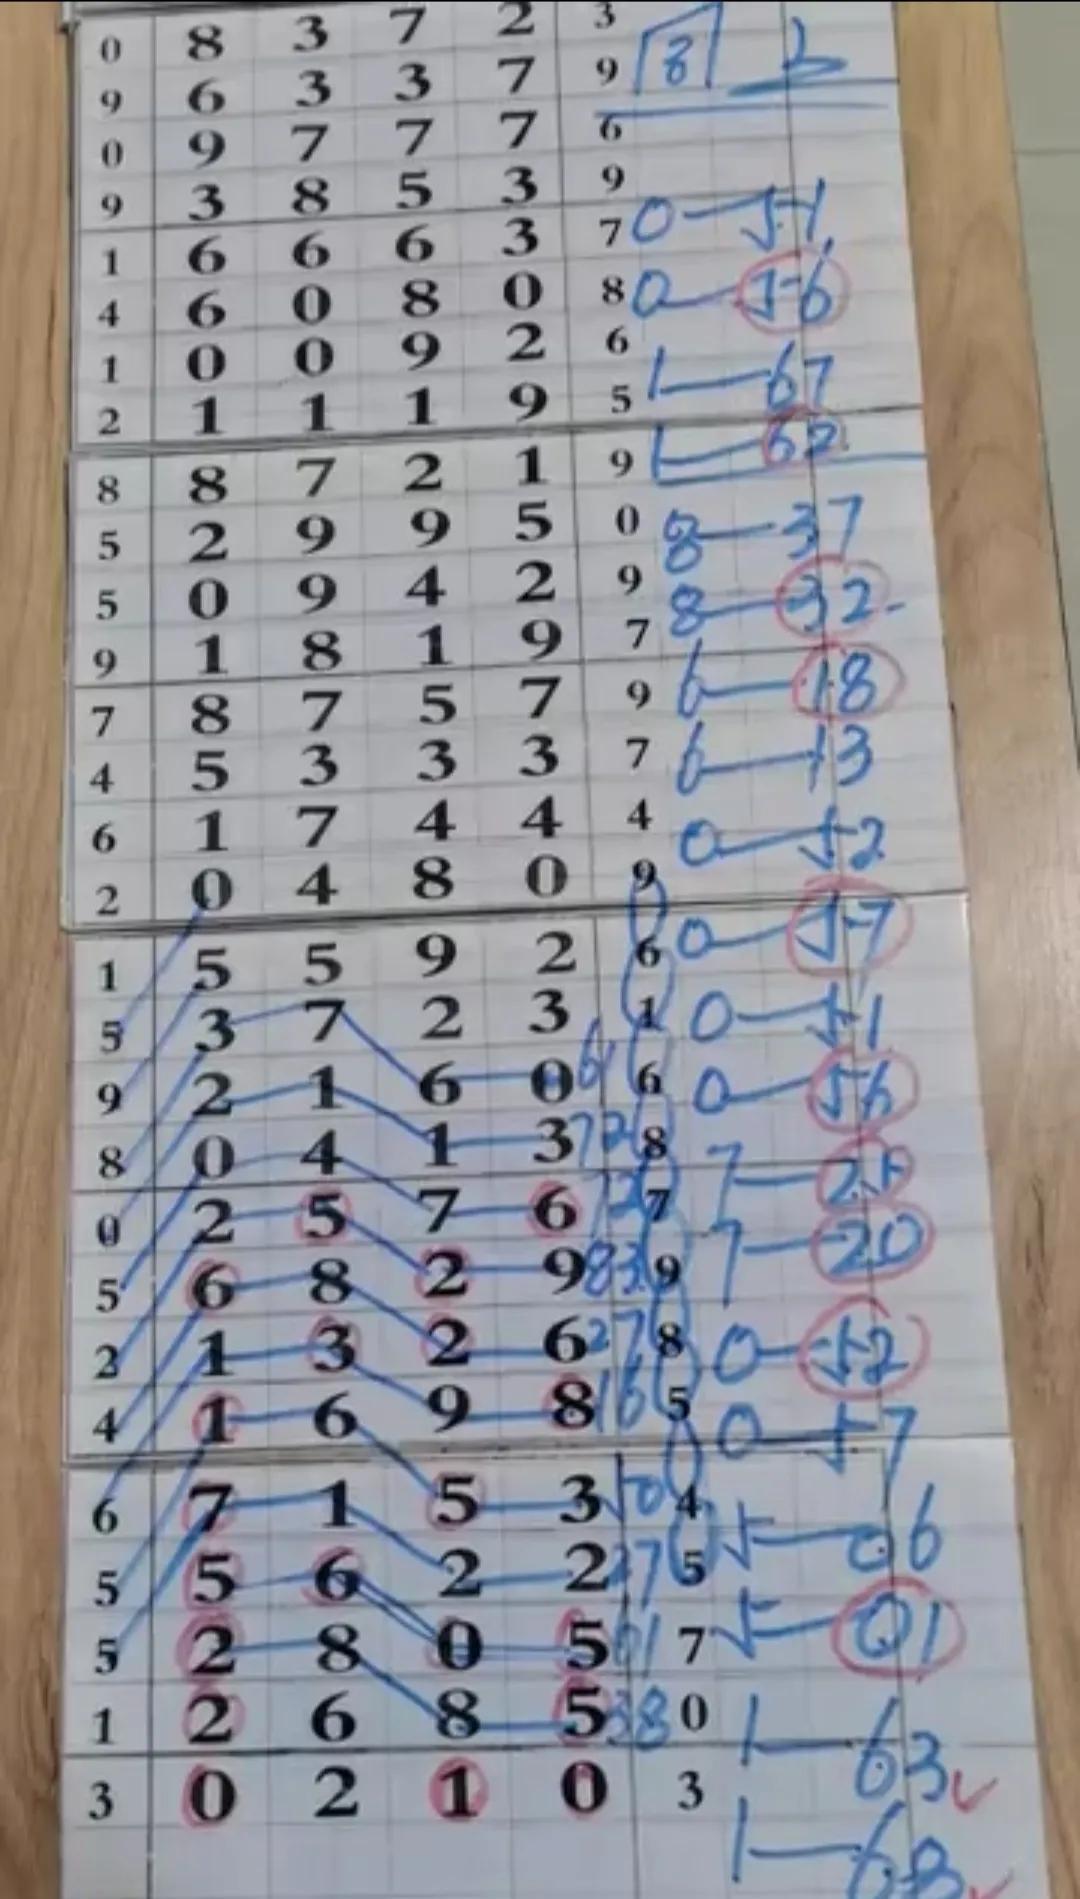 0 8 3 7 2 3 8 2
9 6 3 3 7 9
0 9 7 7 7 6
9 3 8 5 3 9
1 6 6 6 3 7 0—51
4 6 0 8 0 8 0—56
1 0 0 9 2 6 1—67
2 1 1 1 9 5
8 8 7 2 1 9 1—62
5 2 9 9 5 0 8—37
5 0 9 4 2 9 8—32
9 1 8 1 9 7
7 8 7 5 7 9 6—18
4 5 3 3 3 7 6—13
6 1 7 4 4 4 0—52
2 0 4 8 0 9
1 5 5 9 2 6 0—57
5 3 7 2 3 1 0—51
9 2 1 6 0 61 6 0—56
8 0 4 1 3 72 8
0 2 5 7 6 7 7
5 6 8 2 9 83 9 7—20
2 1 3 2 6 27 8 0—52
4 1 6 9 8 16 5 0—57
6 7 1 5 3 50 4 5—06
5 5 6 2 2 27 5
5 2 8 0 5 61 7 5—01
1 2 6 8 5 38 0 1—63
3 0 2 1 0 3
1—68